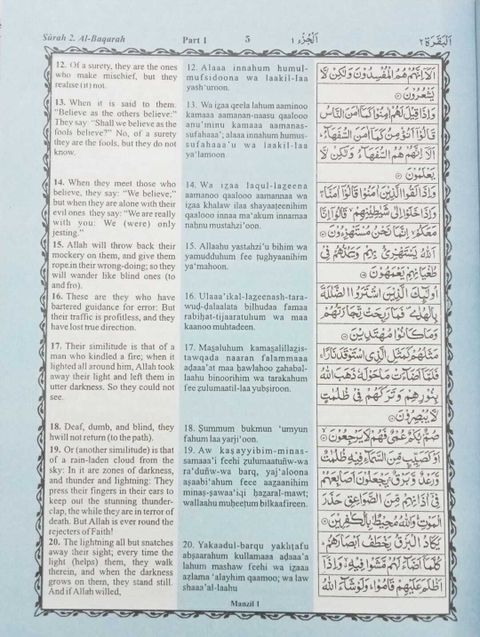 Sûrah 2. Al-Baqarah
Part 1
5
اَلْجُزْءُ ١
اَلْبَقَرَة ٢
12. Of a surety, they are the ones
who make mischief, but they
realise (it) not.
13. When it is said to them.
"Believe as the others believe:"
They say: "Shall we believe as the
fools believe?" No, of a surety
they are the fools, but they do not
know.
14. When they meet those who
believe, they say: "We believe,"
but when they are alone with their
evil ones they say: "We are really
with you: We (were) only
jesting."
15. Allah will throw back their
mockery on them, and give them
rope in their wrong-doing; so they
will wander like blind ones (to
and fro).
16. These are they who have
bartered guidance for error: But
their traffic is profitless, and they
have lost true direction.
17. Their similitude is that of a
man who kindled a fire; when it
lighted all around him, Allah took
away their light and left them in
utter darkness. So they could not
see.
18. Deaf, dumb, and blind, they
will not return (to the path).
19. Or (another similitude) is that
of a rain-laden cloud from the
sky: In it are zones of darkness,
and thunder and lightning: They
press their fingers in their ears to
keep out the stunning thunder-
clap, the while they are in terror of
death. But Allah is ever round the
rejecters of Faith!
20. The lightning all but snatches
away their sight; every time the
light (helps) them, they walk
therein, and when the darkness
grows on them, they stand still.
And if Allah willed,
12. Alaaa innahum humul-
mufsidoona wa laakil-laa
yash'uroon.
13. Wa izaa qeela lahum aaminoo
kamaaa aamanan-naasu qaalooo
anu'minu kamaaa aamanas-
sufahaaa'; alaaa innahum humus-
sufahaaa'u wa laakil-laa
ya'lamoon
14. Wa izaa laqul-lazeena
aamanoo qaalooo aamannaa wa
izaa khalaw ilaa shayaateenihim
qaalooo innaa ma'akum innamaa
nahnu mustahzi'oon.
15. Allaahu yastahzi'u bihim wa
yamudduhum fee ṭughyaanihim
ya'mahoon.
16. Ulaaa'ikal-lazeenash-tara-
wuḍ-ḍalaalata bilhudaa famaa
rabiḥat-tijaaratuhum wa maa
kaanoo muhtadeen.
17. Maṣaluhum kamaṣalillazis-
tawqada naaran falammaaa
aḍaaa'at maa ḥawlahoo zahabal-
laahu binoorihim wa tarakahum
fee zulumaatil-laa yubṣiroon.
18. Ṣummum bukmun 'umyun
fahum laa yarji'oon.
19. Aw kaṣayyibim-minas-
samaaa'i feehi zulumaatuñw-wa
ra'duñw-wa barq, yaj'aloona
aṣaabi'ahum feee aazaanihim
minaṣ-ṣawaa'iqi ḥazaral-mawt;
wallaahu muḥeeṭum bilkaafireen.
20. Yakaadul-barqu yakhṭafu
abṣaarahum kullamaaa aḍaaa'a
lahum mashaw feehi wa izaaa
azlama 'alayhim qaamoo; wa law
shaaa'al-laahu
اَلَاۤ اِنَّهُمْ هُمُ الْمُفْسِدُوْنَ وَلٰكِنْ لَّا
يَشْعُرُوْنَ
وَاِذَا قِيْلَ لَهُمْ اٰمِنُوْا كَمَاۤ اٰمَنَ النَّاسُ
قَالُوْۤا اَنُؤْمِنُ كَمَاۤ اٰمَنَ السُّفَهَآءُ ؕ
اَلَاۤ اِنَّهُمْ هُمُ السُّفَهَآءُ وَلٰكِنْ لَّا
يَعْلَمُوْنَ
وَاِذَا لَقُوا الَّذِيْنَ اٰمَنُوْا قَالُوْۤا اٰمَنَّا ۚ
وَاِذَا خَلَوْا اِلٰى شَيٰطِيْنِهِمْ ۙ قَالُوْۤا اِنَّا
مَعَكُمْ ۙ اِنَّمَا نَحْنُ مُسْتَهْزِءُوْنَ
اَللّٰهُ يَسْتَهْزِئُ بِهِمْ وَيَمُدُّهُمْ فِيْ
طُغْيَانِهِمْ يَعْمَهُوْنَ
اُولٰٓئِكَ الَّذِيْنَ اشْتَرَوُا الضَّلٰلَةَ
بِالْهُدٰى ۪ فَمَا رَبِحَتْ تِّجَارَتُهُمْ
وَمَا كَانُوْا مُهْتَدِيْنَ
مَثَلُهُمْ كَمَثَلِ الَّذِى اسْتَوْقَدَ نَارًا ۚ
فَلَمَّاۤ اَضَآءَتْ مَا حَوْلَهٗ ذَهَبَ اللّٰهُ
بِنُوْرِهِمْ وَتَرَكَهُمْ فِيْ ظُلُمٰتٍ
لَّا يُبْصِرُوْنَ
صُمٌّۢ بُكْمٌ عُمْيٌ فَهُمْ لَا يَرْجِعُوْنَ
اَوْ كَصَيِّبٍ مِّنَ السَّمَآءِ فِيْهِ ظُلُمٰتٌ
وَّرَعْدٌ وَّبَرْقٌ ۚ يَجْعَلُوْنَ اَصَابِعَهُمْ
فِيْۤ اٰذَانِهِمْ مِّنَ الصَّوَاعِقِ حَذَرَ
الْمَوْتِ ؕ وَاللّٰهُ مُحِيْطٌۢ بِالْكٰفِرِيْنَ
يَكَادُ الْبَرْقُ يَخْطَفُ اَبْصَارَهُمْ ؕ
كُلَّمَاۤ اَضَآءَ لَهُمْ مَّشَوْا فِيْهِ ۙ وَاِذَاۤ
اَظْلَمَ عَلَيْهِمْ قَامُوْا ؕ وَلَوْ شَآءَ اللّٰهُ
Manzil 1